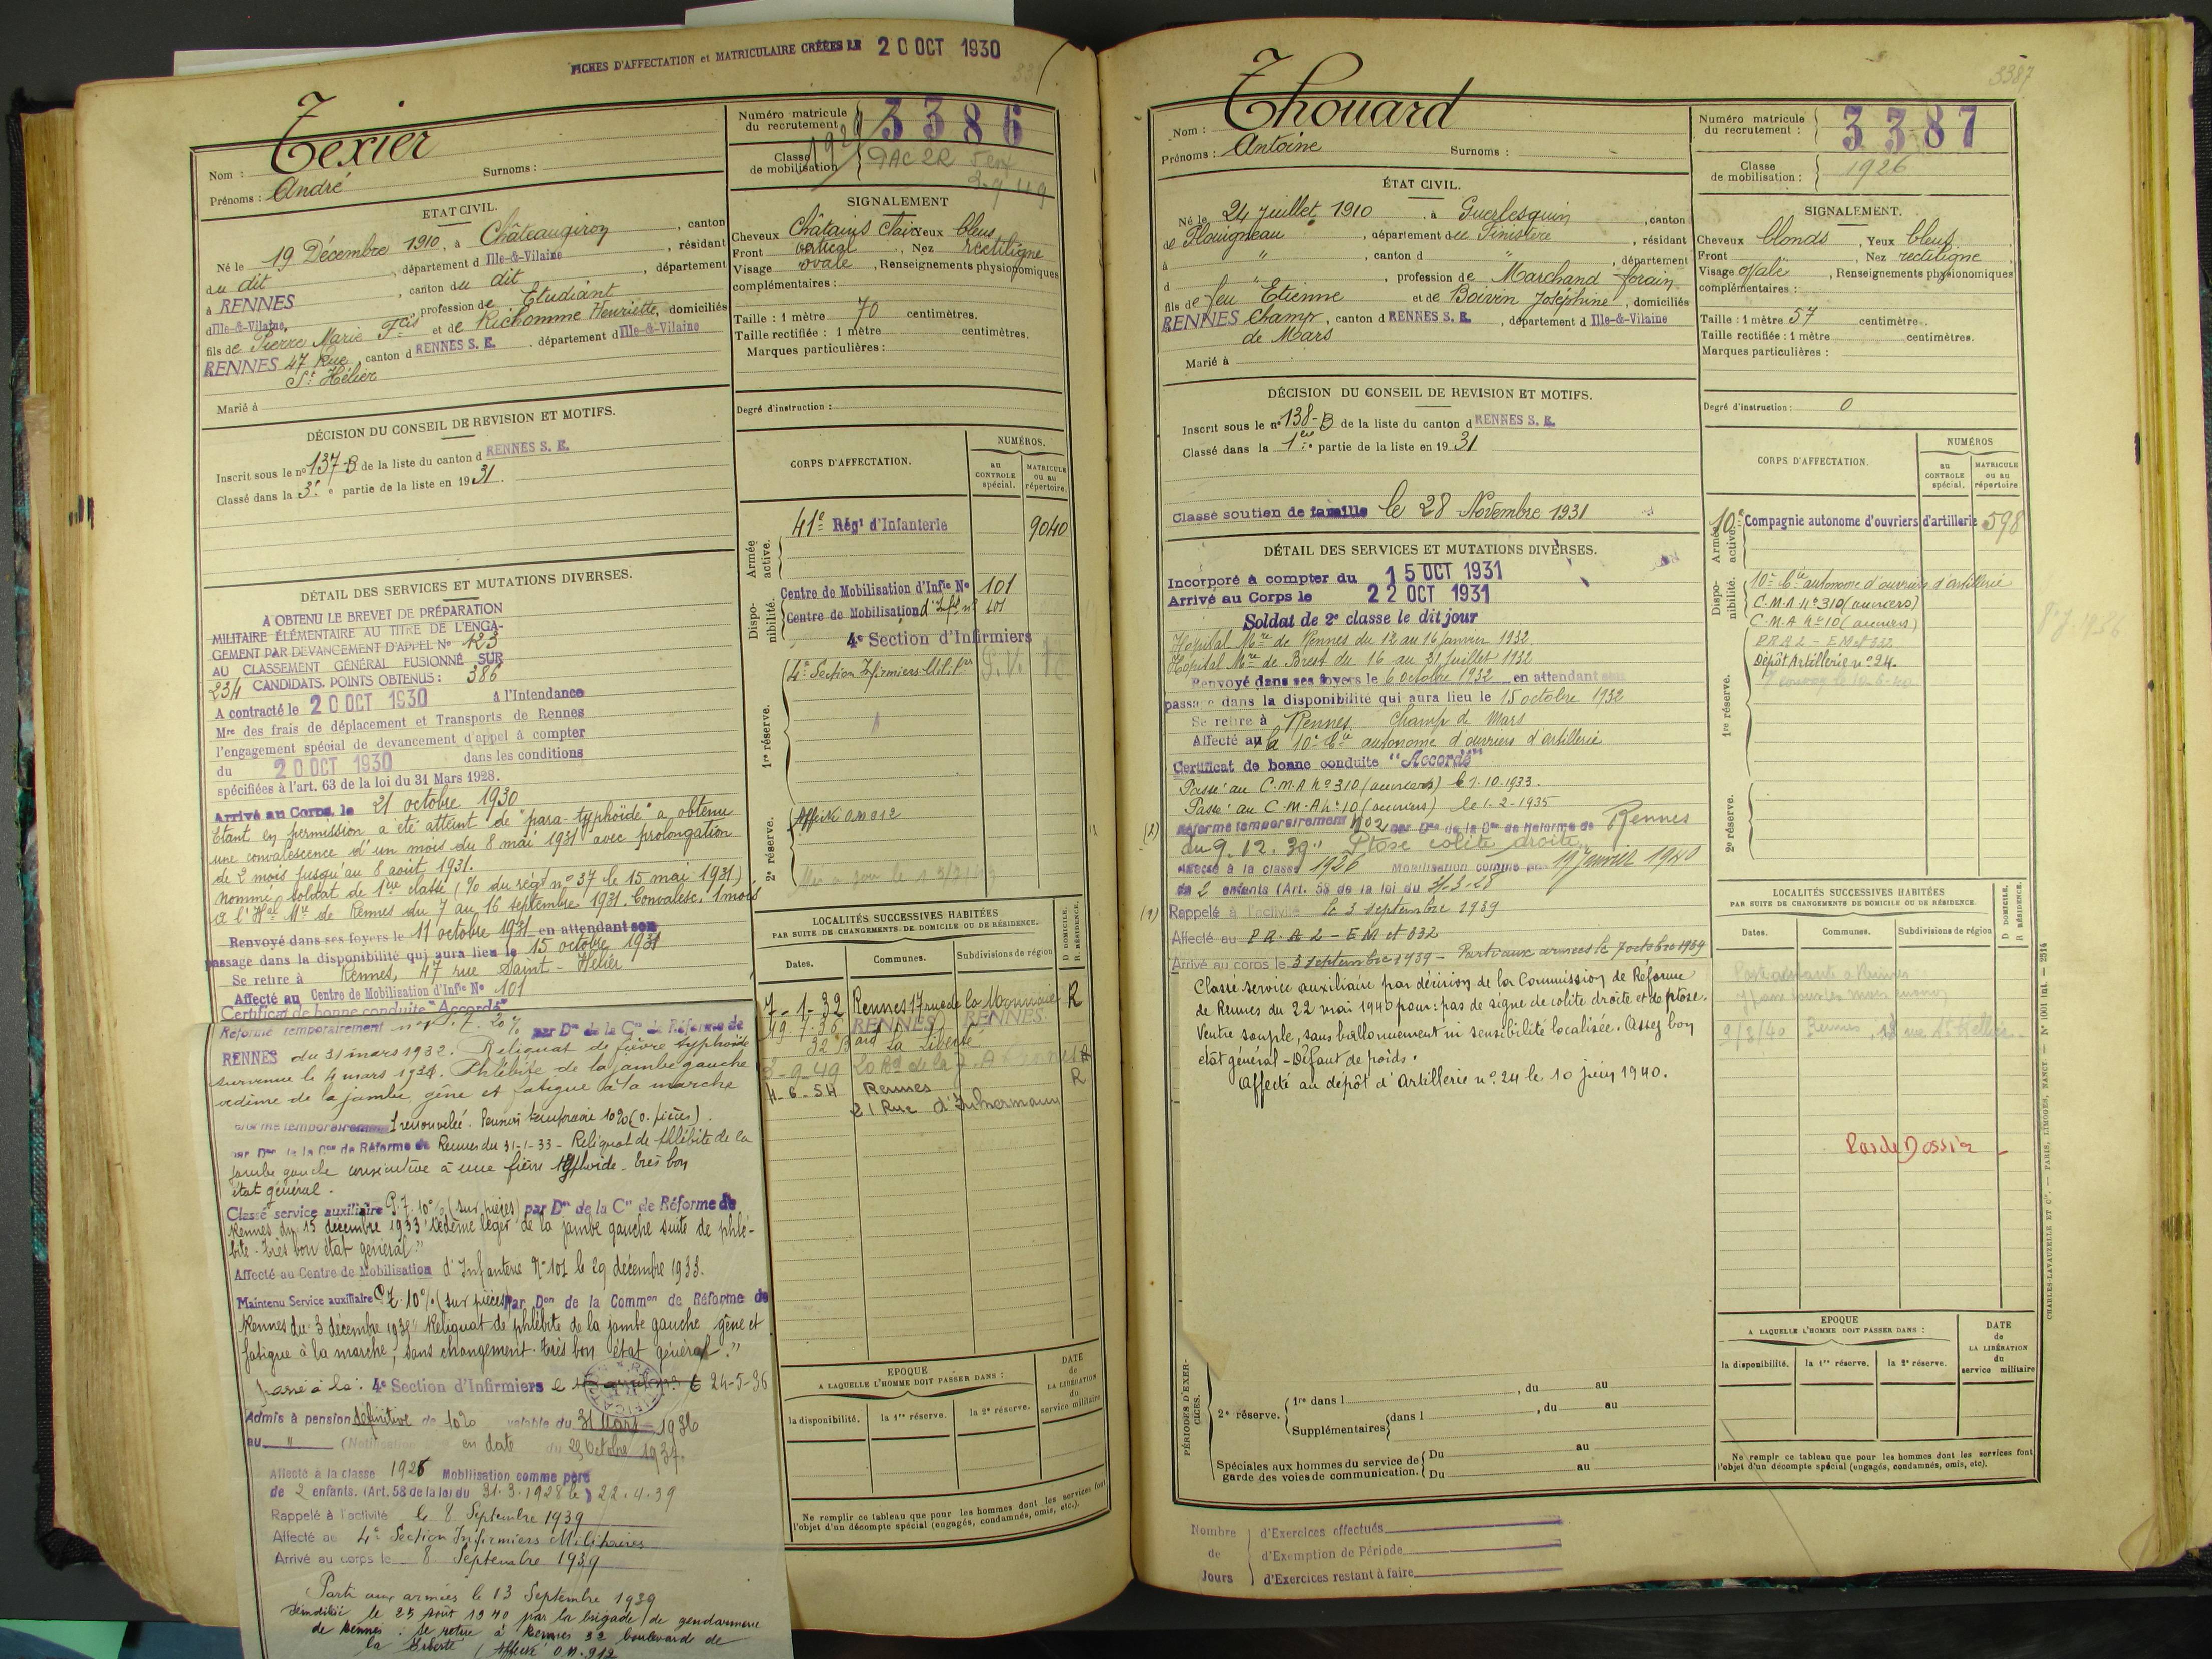 FICHES D'AFFECTATION et MATRICULAIRE CRÉÉES LE 20 OCT 1930
Texier
Nom :
Surnoms :
Prénoms : André
ETAT CIVIL.
Né le 19 Décembre 1910, à Châteaugiron, canton
du dit, département d Ille-&-Vilaine, résidant
à RENNES, canton du dit, département
d Ille-&-Vilaine, profession de Etudiant
fils de Pierre Marie Fcis et de Richomme Henriette, domiciliés
RENNES 47 Rue, canton d RENNES S. E. département d Ille-&-Vilaine
St Hélier
Marié à
DÉCISION DU CONSEIL DE REVISION ET MOTIFS.
Inscrit sous le n° 137-B de la liste du canton d RENNES S. E.
Classé dans la 3e partie de la liste en 1931.
DÉTAIL DES SERVICES ET MUTATIONS DIVERSES.
A OBTENU LE BREVET DE PRÉPARATION
MILITAIRE ÉLÉMENTAIRE AU TITRE DE L'ENGA-
GEMENT PAR DEVANCEMENT D'APPEL N° 123
AU CLASSEMENT GÉNÉRAL FUSIONNÉ SUR
234 CANDIDATS. POINTS OBTENUS : 386
A contracté le 20 OCT 1930 à l'Intendance
Mre des frais de déplacement et Transports de Rennes
l'engagement spécial de devancement d'appel à compter
du 20 OCT 1930 dans les conditions
spécifiées à l'art. 63 de la loi du 31 Mars 1928.
Arrivé au Corps, le 21 octobre 1930
Etant en permission a été atteint de "para-typhoïde" a obtenu
une convalescence d'un mois du 8 mai 1931 avec prolongation
de 2 mois jusqu'au 8 août 1931.
Nommé soldat de 1ère classe (% du régt n° 37 le 15 mai 1931)
à l'Hal Mre de Rennes du 7 au 16 septembre 1931. Convalesc. 1 mois
Renvoyé dans ses foyers le 11 octobre 1931 en attendant son
passage dans la disponibilité qui aura lieu le 15 octobre 1931
Se retire à Rennes, 47 rue Saint-Hélier
Affecté au Centre de Mobilisation d'Infie N° 101
Certificat de bonne conduite "Accordé"
Réformé temporairement n° 1 P.T. 20% par Don de la Con de Réforme de
RENNES du 31 mars 1932. Reliquat de fièvre typhoïde
survenue le 4 mars 1931. Phlébite de la jambe gauche
oedème de la jambe, gêne et fatigue à la marche
Réformé temporairement 1 renouvelée. Pension temporaire 10% (s. pièces).
par Don de la Con de Réforme de Rennes du 31-1-33 - Reliquat de phlébite de la
jambe gauche consécutive à une fièvre typhoïde - très bon
état général.
Classé service auxiliaire P.T. 10% (sur pièces) par Don de la Con de Réforme de
Rennes du 15 décembre 1933 "Oedème léger de la jambe gauche suite de phlé-
bite - très bon état général"
Affecté au Centre de Mobilisation d'Infanterie N° 101 le 29 décembre 1933.
Maintenu Service auxiliaire P.T. 10% (sur pièces) Par Don de la Common de Réforme de
Rennes du 3 décembre 1935 "Reliquat de phlébite de la jambe gauche gêne et
fatigue à la marche, sans changement. très bon état général."
passé à la : 4e Section d'Infirmiers le 24-5-36
Admis à pension définitive de 10% valable du 31 mars 1936
au " (Notification en date du 23 Octobre 1937.
Affecté à la classe 1926 Mobilisation comme père
de 2 enfants. (Art. 58 de la loi du 31.3.1928 le) 22.4.39
Rappelé à l'activité le 8 Septembre 1939
Affecté au 4e Section Infirmiers Militaires
Arrivé au corps le 8 Septembre 1939
Parti aux armées le 13 Septembre 1939
le 25 Août 1940 par la brigade de gendarmerie
de Rennes : se retire à Rennes 32 boulevard de
la Liberté (Affecté O.M. 912
Numéro matricule
du recrutement
3386
Classe
de mobilisation
1926
SIGNALEMENT
Cheveux Châtains clairs Yeux bleus
Front vertical, Nez rectiligne
Visage ovale, Renseignements physionomiques
complémentaires :
Taille : 1 mètre 70 centimètres.
Taille rectifiée : 1 mètre centimètres.
Marques particulières :
Degré d'instruction :
CORPS D'AFFECTATION.
NUMÉROS.
au CONTROLE spécial.
MATRICULE ou au répertoire.
Armée active.
41e Régt d'Infanterie 9040
Disponibilité.
Centre de Mobilisation d'Infie N° 101
Centre de Mobilisation d'Infie n° 101
4e Section d'Infirmiers
1re réserve.
4e Section Infirmiers Milit.res
2e réserve.
Affecté O.M 912
LOCALITÉS SUCCESSIVES HABITÉES
PAR SUITE DE CHANGEMENTS DE DOMICILE OU DE RÉSIDENCE.
D. DOMICILE. R. RÉSIDENCE.
Dates. Communes. Subdivisions de région
7-1-32 Rennes 17 rue de la Monnaie R
19.7.36 RENNES RENNES
32 Bard La Liberté
2-9-49
4-6-54 Rennes R
21 Rue d'Inkermann
EPOQUE
A LAQUELLE L'HOMME DOIT PASSER DANS :
la disponibilité. la 1re réserve. la 2e réserve.
DATE de LA LIBÉRATION du service militaire
Ne remplir ce tableau que pour les hommes dont les services font
l'objet d'un décompte spécial (engagés, condamnés, omis, etc.).
3387
Nom : Thouard
Prénoms : Antoine Surnoms :
ÉTAT CIVIL.
Né le 24 Juillet 1910, à Guerlesquin, canton
de Plouigneau, département du Finistère, résidant
à ", canton d ", département
d ", profession de Marchand forain
fils de feu Etienne et de Boivin Joséphine, domiciliés
RENNES Champ, canton d RENNES S. E., département d Ille-&-Vilaine
de Mars
Marié à
DÉCISION DU CONSEIL DE REVISION ET MOTIFS.
Inscrit sous le n° 138-B de la liste du canton d RENNES S. E.
Classé dans la 1ère partie de la liste en 1931
Classé soutien de famille le 28 Novembre 1931
DÉTAIL DES SERVICES ET MUTATIONS DIVERSES.
Incorporé à compter du 15 OCT 1931
Arrivé au Corps le 22 OCT 1931
Soldat de 2e classe le dit jour
Hôpital Mre de Rennes du 12 au 16 janvier 1932
Hôpital Mre de Brest du 16 au 31 juillet 1932
Renvoyé dans ses foyers le 6 octobre 1932 en attendant son
passage dans la disponibilité qui aura lieu le 15 octobre 1932
Se retire à Rennes Champ de Mars
Affecté à la 10e Cie autonome d'ouvriers d'artillerie
Certificat de bonne conduite "Accordé"
Passé au C.M.A n° 310 (ouvriers) le 1.10.1933.
Passé au C.M.A n° 10 (ouvriers) le 1.2-1935
(2) Réformé temporairement N° 2 par Don de la Con de Réforme de Rennes
du 9.12.39 "Ptose colite droite"
Affecté à la classe 1926 Mobilisation comme père 19 Janvier 1940
de 2 enfants (Art. 58 de la loi du 31-3-28
(1) Rappelé à l'activité le 3 septembre 1939
Affecté au P.R.A 2 - EM et 032
Arrivé au corps le 3 septembre 1939 - Parti aux armées le 7 octobre 1939
Classé service auxiliaire par décision de la Commission de Réforme
de Rennes du 22 mai 1940 pour : pas de signe de colite droite et de ptose.
Ventre souple, sans ballonnement ni sensibilité localisée. Assez bon
état général - Défaut de poids.
Affecté au dépôt d'Artillerie n° 24 le 10 juin 1940.
PÉRIODES D'EXERCICES.
2e réserve.
1re dans l , du au
Supplémentaires dans l , du au
Spéciales aux hommes du service de
garde des voies de communication.
Du au
Du au
Nombre de Jours
d'Exercices effectués
d'Exemption de Période
d'Exercices restant à faire
Numéro matricule
du recrutement :
3387
Classe
de mobilisation : 1926
SIGNALEMENT.
Cheveux blonds, Yeux bleus
Front , Nez rectiligne
Visage ovale, Renseignements physionomiques
complémentaires :
Taille : 1 mètre 57 centimètres.
Taille rectifiée : 1 mètre centimètres.
Marques particulières :
Degré d'instruction : 0
CORPS D'AFFECTATION.
NUMÉROS
au CONTROLE spécial.
MATRICULE ou au répertoire
Armée active.
10e Compagnie autonome d'ouvriers d'artillerie 598
Disponibilité.
10e Cie autonome d'ouvriers d'artillerie
C.M.A n° 310 (ouvriers)
C.M.A n° 10 (ouvriers)
1re réserve.
P.R.A 2 - EM et 032
Dépôt Artillerie n° 24.
2e réserve.
LOCALITÉS SUCCESSIVES HABITÉES
PAR SUITE DE CHANGEMENTS DE DOMICILE OU DE RÉSIDENCE.
D. DOMICILE. R. RÉSIDENCE.
Dates. Communes. Subdivisions de région
Pas de Dossier
EPOQUE
A LAQUELLE L'HOMME DOIT PASSER DANS :
la disponibilité. la 1re réserve. la 2e réserve.
DATE de LA LIBÉRATION du service militaire
Ne remplir ce tableau que pour les hommes dont les services font
l'objet d'un décompte spécial (engagés, condamnés, omis, etc).
CHARLES-LAVAUZELLE ET Cie. — PARIS, LIMOGES, NANCY — N° 1001 int. — 2514